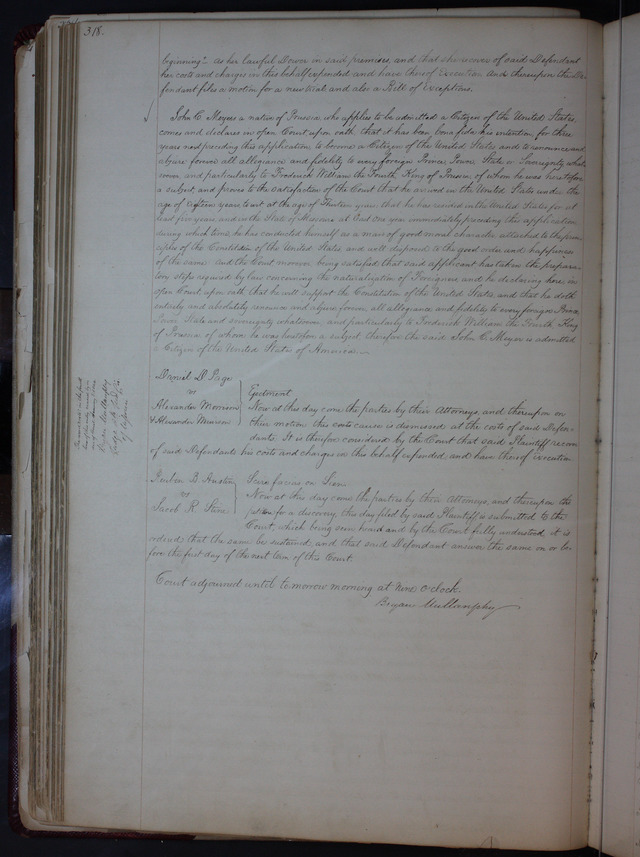 318.
beginning" as her lawful Dower in said premises, and that she recover of said Defendant
her costs and charges in this behalf expended and have thereof execution And thereupon the De-
fendant files a motion for a new trial and also a Bill of Exceptions.
John C Meyer a native of Prussia, who applies to be admitted a Citizen of the United States,
comes and declares in open Court upon oath that it has been bona fide his intention for three
years next preceding this application, to become a Citizen of the United States and to renounce and
abjure forever all allegiance and fidelity to every foreign Prince, Power, State or Sovereignty whats-
oever, and particularly to Frederick William the Fourth, King of Prussia, of whom he was heretofore
a subject, and proves to the satisfaction of the Court that he arrived in the United States under the
age of eighteen years to wit at the age of Thirteen years that he has resided in the United States for at
least five years and in the State of Missouri at least one year immediately preceding this application
during which time he has conducted himself as a man of good moral character attached to the prin-
ciples of the Constitution of the United States and well disposed to the good order and happiness
of the same And the Court moreover being satisfied that said applicant has taken the prepara-
tory steps required by law concerning the naturalization of Foreigners and he declaring here in
open Court upon oath that he will support the Constitution of the United States and that he doth
entirely and absolutely renounce and abjure forever all allegiance and fidelity to every foreign Prince
Power State and sovereignty whatsoever, and particularly to Frederick William the Fourth King
of Prussia of whom he was heretofore a subject therefore the said John C. Meyer is admitted
a Citizen of the United States of America.
Daniel D Page
vs
Alexander Morrison
& Alexander Munson
Ejectment
Now at this day come the parties by their Attorneys, and thereupon on
their motion this cause is dismissed at the costs of said Defen-
dants. It is therefore considered by the Court that said Plaintiff recover
of said Defendants his costs and charges in this behalf expended and have thereof execution
Reuben B Austin
vs
Jacob R Stine
Scire facias on Liens
Now at this day come the parties by their Attorneys, and thereupon the
petition for a discovery this day filed by said Plaintiff is submitted to the
Court, which being seen heard and by the Court fully understood it is
ordered that the same be sustained, and that said Defendant answer the same on or be-
fore the first day of the next term of this Court.
Court adjourned until tomorrow morning at nine o'clock.
Bryan Mullanphy
Bryan Mullanphy